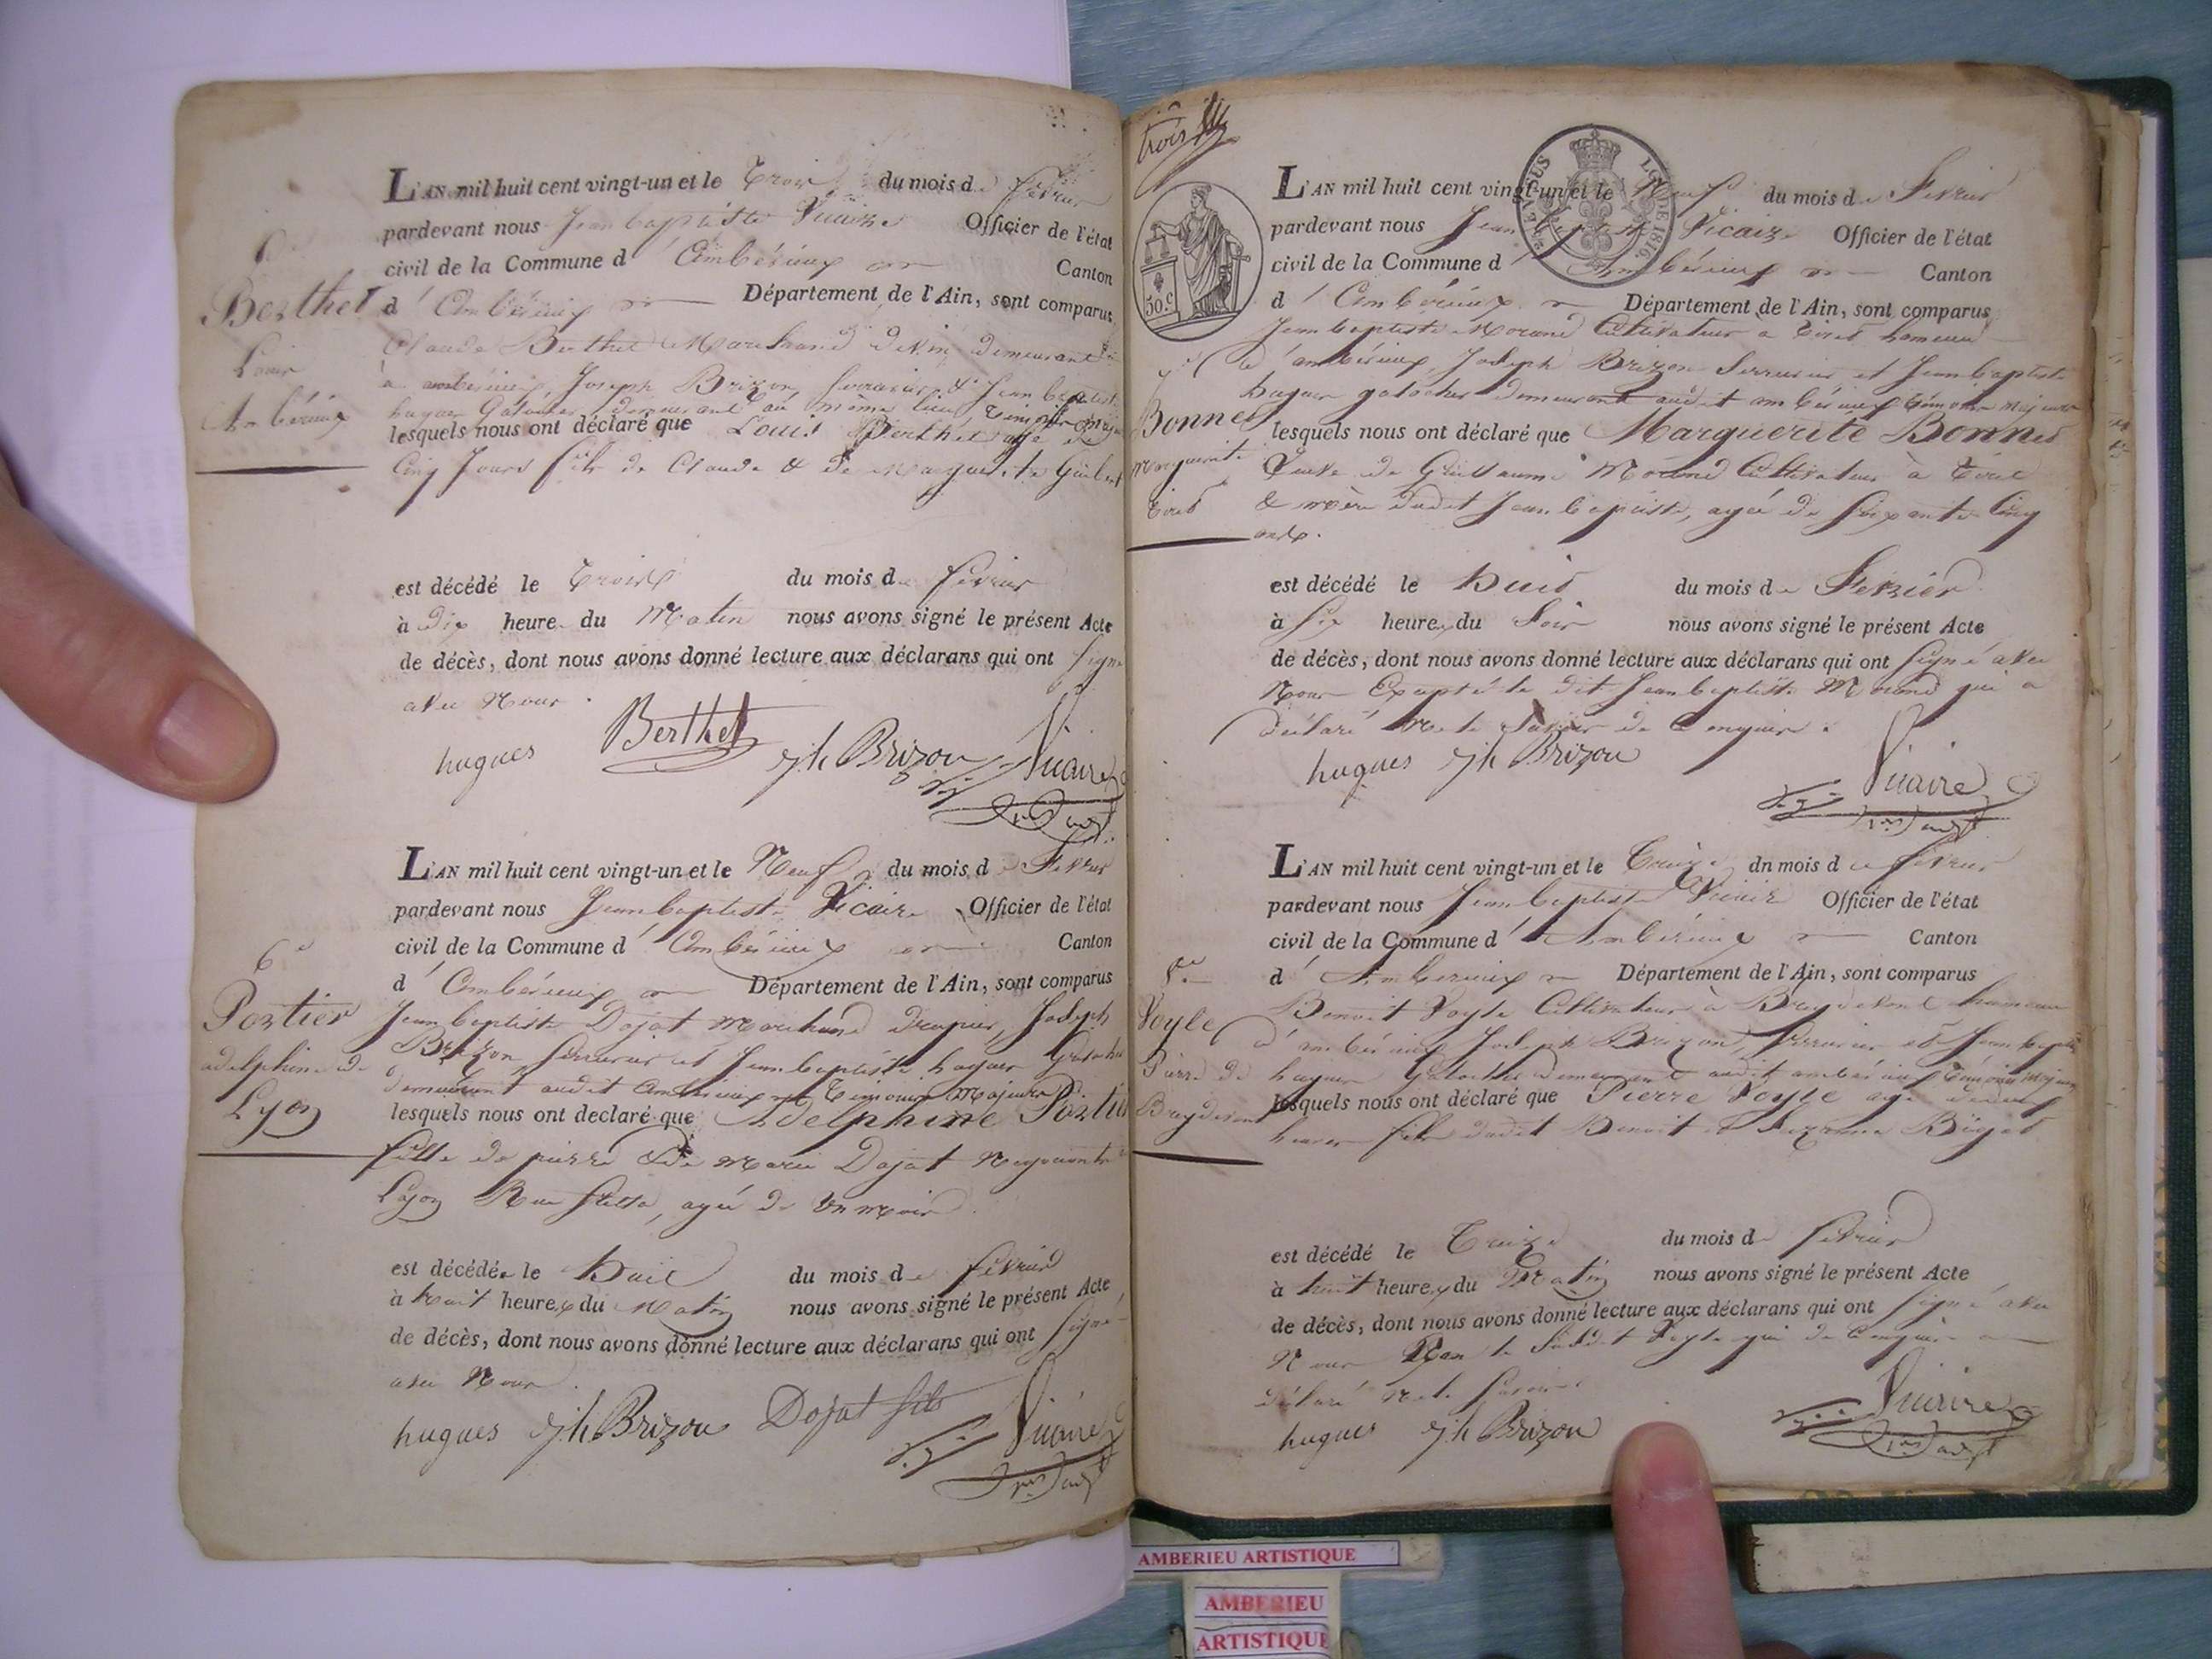 Berthet
Louis
Ambérieux
L'AN mil huit cent vingt-un et le Trois du mois de fevrier
pardevant nous Jean baptiste Vicaire Officier de l'état
civil de la Commune d'Ambérieux Canton
d'Ambérieux Département de l'Ain, sont comparus
Claude Berthet Marchand demeurant
à ambérieux, Joseph Brizon Serrurier & Jean baptiste
hugues Galocher demeurant au même lieu témoins
lesquels nous ont déclaré que Louis Berthet agé de
Cinq Jours fils de Claude & de Marguerite
est décédé le Trois du mois de fevrier
à dix heure du Matin nous avons signé le présent Acte
de décès, dont nous avons donné lecture aux déclarans qui ont signé
avec Nous.
hugues Berthet jh Brizon Vicaire
6e
Portier
adelphine de
Lyon
L'AN mil huit cent vingt-un et le Neuf du mois de Fevrier
pardevant nous Jean baptiste Vicaire Officier de l'état
civil de la Commune d'Ambérieux Canton
d'Ambérieux Département de l'Ain, sont comparus
Jean baptiste Dojat Marchand drapier, Joseph
Brizon Serrurier et Jean baptiste hugues Galocher
demeurant audit Ambérieux Témoins Majeurs
lesquels nous ont declaré que Adelphine Portier
fille de pierre & de Marie Dojat Negociant
Lyon Rue agée de un mois
est décédée le huit du mois de fevrier
à huit heure du Matin nous avons signé le présent Acte
de décès, dont nous avons donné lecture aux déclarans qui ont signé
avec Nous.
hugues jh Brizon Dojat fils Vicaire
trois
50 c.
LOI DE 1816
7e
Bonnet
Marguerite
Tiret
L'AN mil huit cent vingt-un et le Neuf du mois de Fevrier
pardevant nous Jean baptiste Vicaire Officier de l'état
civil de la Commune d'Ambérieux Canton
d'Ambérieux Département de l'Ain, sont comparus
Jean baptiste Morand Cultivateur a Tiret hameau
d'ambérieux, Joseph Brizon Serrurier et Jean baptiste
hugues galocher demeurant audit ambérieux témoins majeurs
lesquels nous ont déclaré que Marguerite Bonnet
Veuve de Guillaume Morand Cultivateur à Tiret
& mère dudit Jean baptiste, agée de soixante cinq
ans.
est décédé le huit du mois de Fevrier
à six heure du Soir nous avons signé le présent Acte
de décès, dont nous avons donné lecture aux déclarans qui ont signé avec
Nous Excepté le dit Jean baptiste Morand qui a
déclaré ne le savoir de ce enquis.
hugues jh Brizon Vicaire
8e
Voyle
Pierre de
Breydevent
L'AN mil huit cent vingt-un et le Treize dn mois de fevrier
pardevant nous Jean baptiste Vicaire Officier de l'état
civil de la Commune d'Ambérieux Canton
d'Ambérieux Département de l'Ain, sont comparus
Benoit Voyle Cultivateur à Breydevent hameau
d'ambérieux Joseph Brizon, Serrurier & Jean baptiste
hugues galocher demeurant audit ambérieux Témoins majeurs
lesquels nous ont déclaré que Pierre Voyle agé de
heures fils dudit Benoit et Suzanne
est décédé le Treize du mois de fevrier
à huit heure du Matin nous avons signé le présent Acte
de décès, dont nous avons donné lecture aux déclarans qui ont signé avec
Nous Non le Susdit Voyle qui de ce enquis a
déclaré ne le savoir.
hugues jh Brizon Vicaire
AMBERIEU ARTISTIQUE
AMBERIEU
ARTISTIQUE